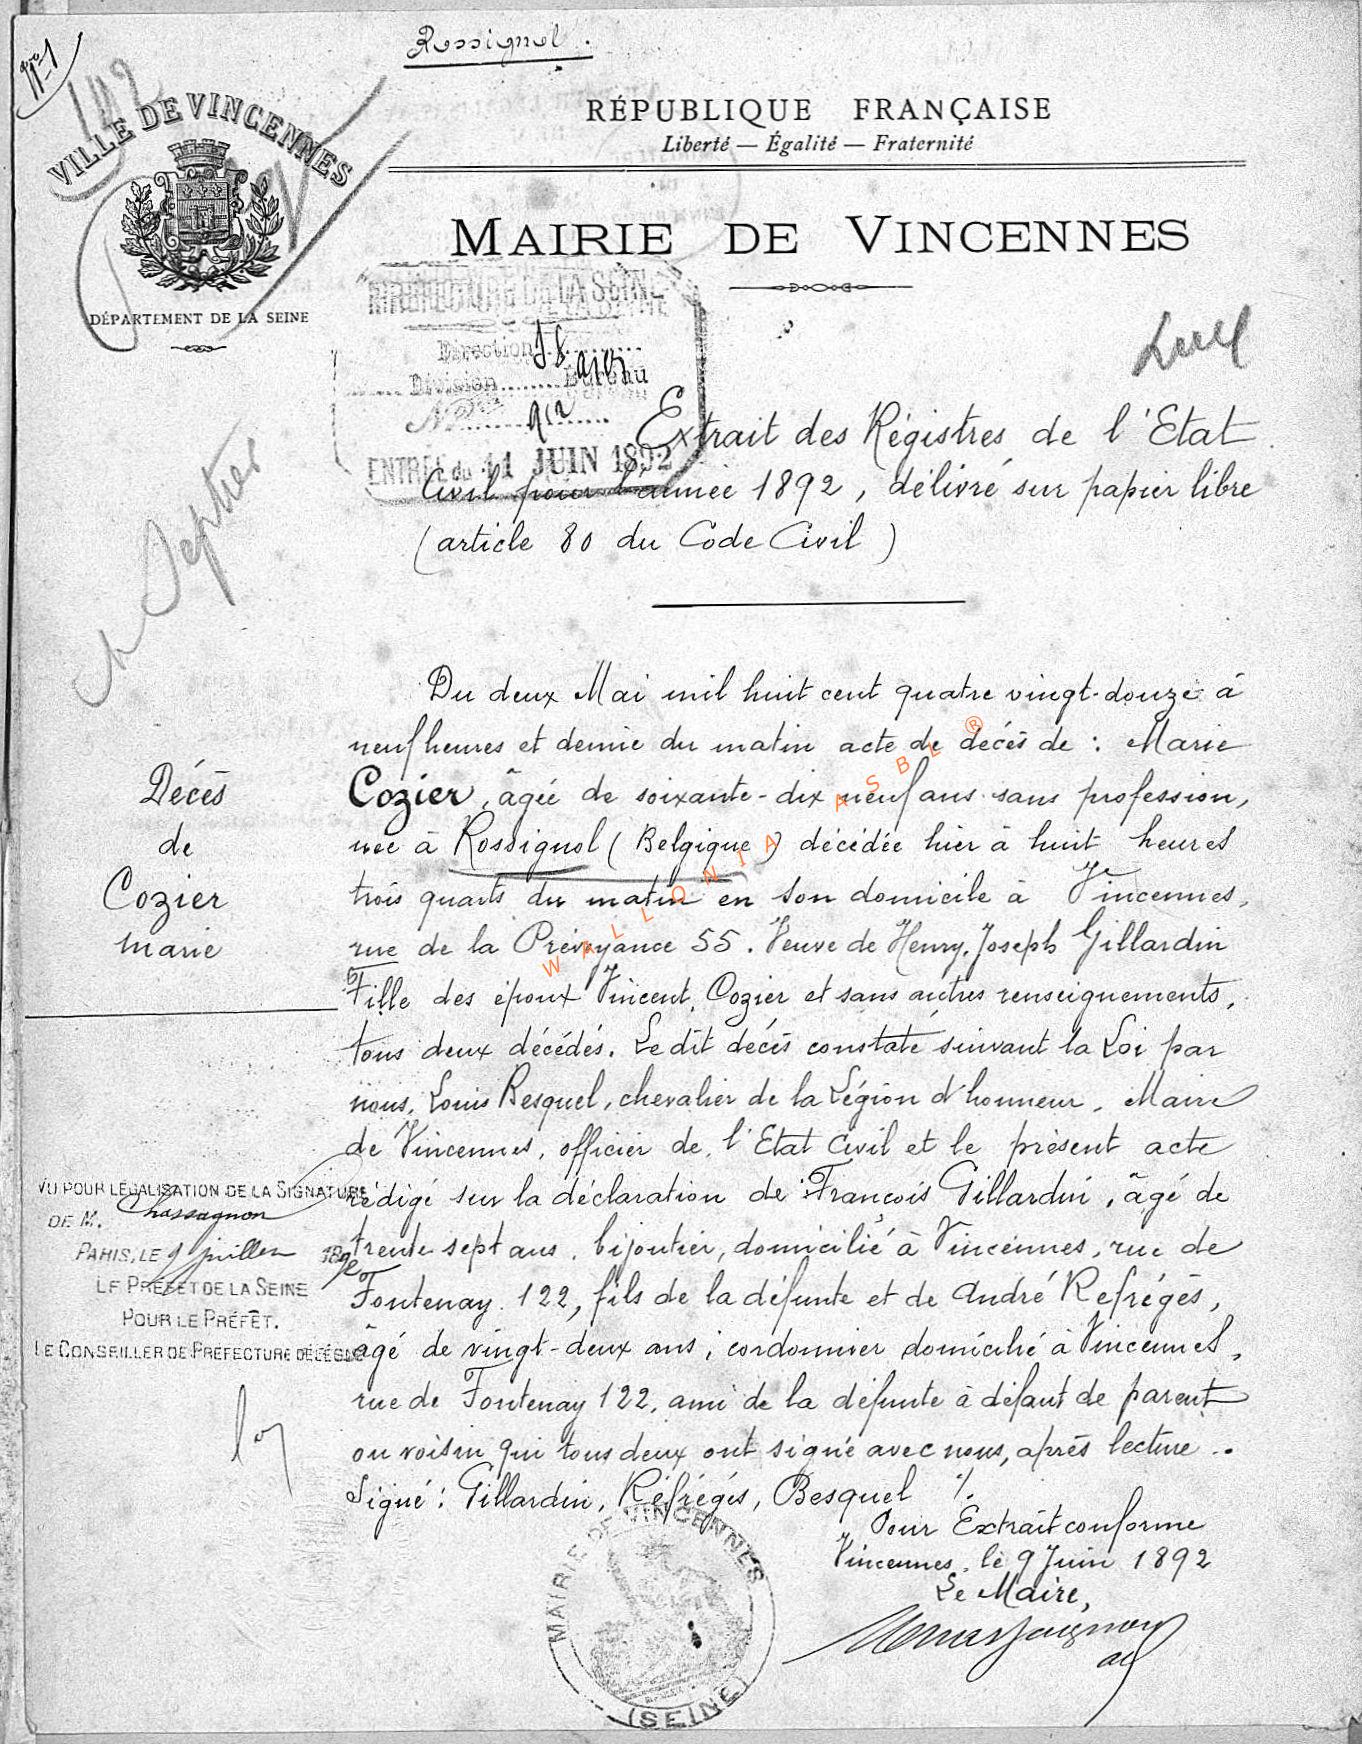 Rossignol.
VILLE DE VINCENNES
DÉPARTEMENT DE LA SEINE
RÉPUBLIQUE FRANÇAISE
Liberté — Égalité — Fraternité
MAIRIE DE VINCENNES
PRÉFECTURE DE LA SEINE
Direction
Division Bureau
No
ENTRÉE du 11 JUIN 1892
Extrait des Régistres de l'Etat
Civil pour l'année 1892, délivré sur papier libre
(article 80 du Code Civil)
Décès
de
Cozier
Marie
Du deux Mai mil huit cent quatre vingt-douze à
neuf heures et demie du matin acte de décès de : Marie
Cozier, âgée de soixante-dix neuf ans sans profession,
née à Rossignol (Belgique) décédée hier à huit heures
trois quarts du matin en son domicile à Vincennes,
rue de la Prévoyance 55. Veuve de Henry, Joseph Gillardin
Fille des époux Vincent, Cozier et sans autres renseignements,
tous deux décédés. Le dit décès constaté suivant la Loi par
nous, Louis Besquel, chevalier de la Légion d'honneur, Maire
de Vincennes, officier de l'Etat Civil et le présent acte
rédigé sur la déclaration de François Gillardin, âgé de
trente sept ans, bijoutier, domicilié à Vincennes, rue de
Fontenay 122, fils de la défunte et de André Refrégés,
âgé de vingt-deux ans, cordonnier domicilié à Vincennes,
rue de Fontenay 122, ami de la défunte à défaut de parent
ou voisin qui tous deux ont signé avec nous, après lecture ..
Signé : Gillardin, Réfrégés, Besquel ./.
Pour Extrait conforme
Vincennes, le 9 Juin 1892
Le Maire,
VU POUR LÉGALISATION DE LA SIGNATURE
DE M. Chassagnon
PARIS, LE 9 juillet 1892
LE PRÉFET DE LA SEINE
POUR LE PRÉFET.
LE CONSEILLER DE PRÉFECTURE DÉLÉGUÉ
MAIRIE DE VINCENNES
(SEINE)
WALLONIA ASBL ®